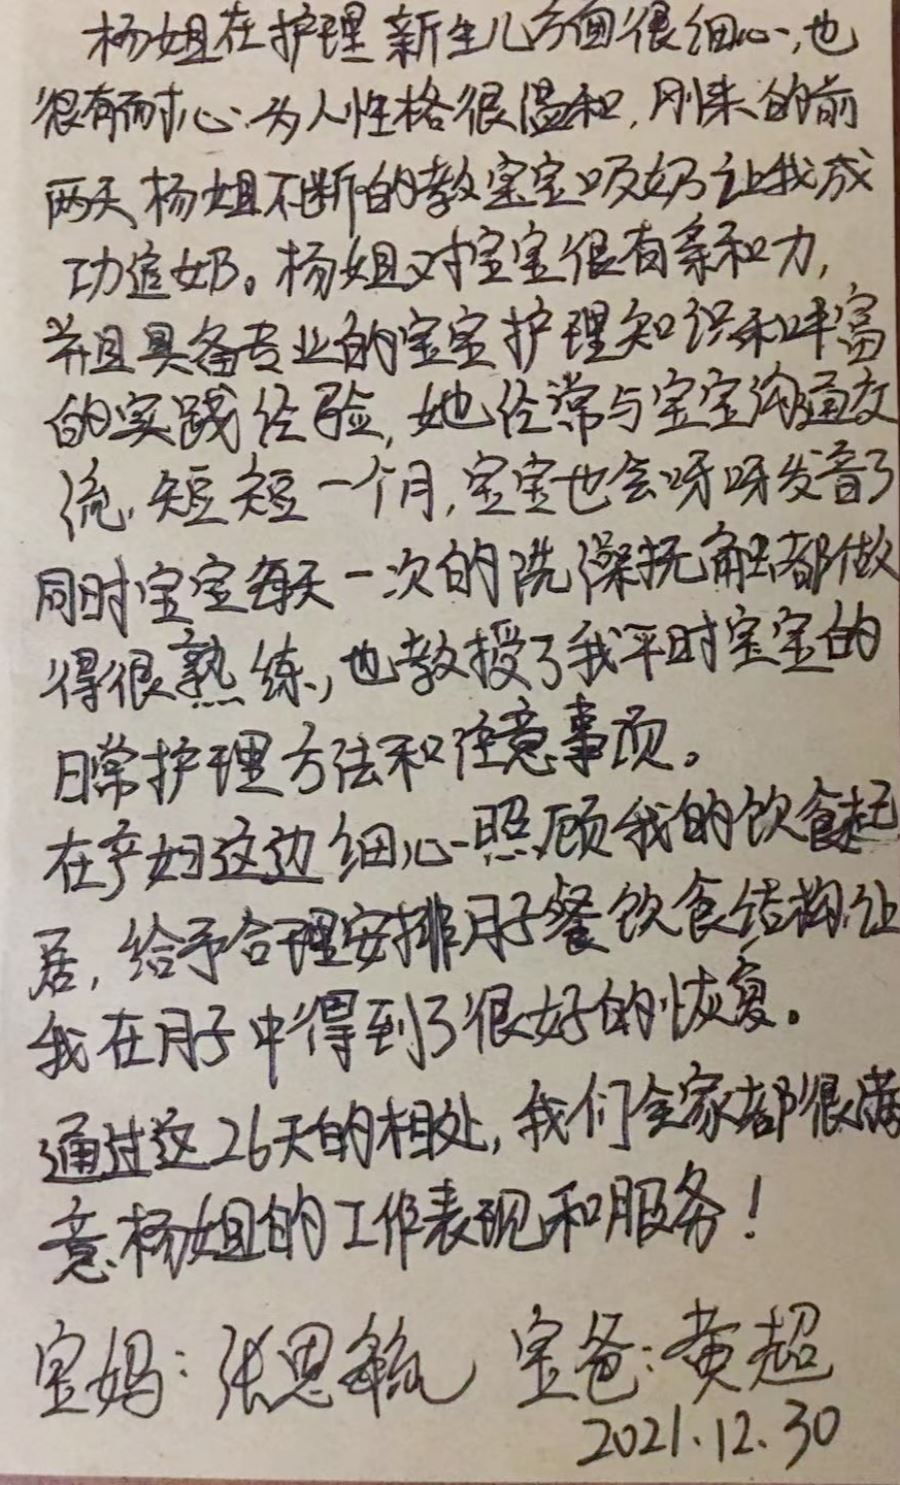 杨姐在护理新生儿方面很细心,也
很有耐心.为人性格很温和,刚来的前
两天,杨姐不断的教宝宝吸奶让我成
功追奶。杨姐对宝宝很有亲和力,
并且具备专业的宝宝护理知识和丰富
的实践经验,她经常与宝宝沟通交
流,短短一个月,宝宝也会呀呀发音了
同时宝宝每天一次的洗澡抚触都做
得很熟练,也教授了我平时宝宝的
日常护理方法和注意事项。
在产妇这边细心照顾我的饮食起
居,给予合理安排月子餐饮食结构,让
我在月子中得到了很好的恢复。
通过这26天的相处,我们全家都很满
意杨姐的工作表现和服务!
宝妈:张思 宝爸:黄超
2021.12.30